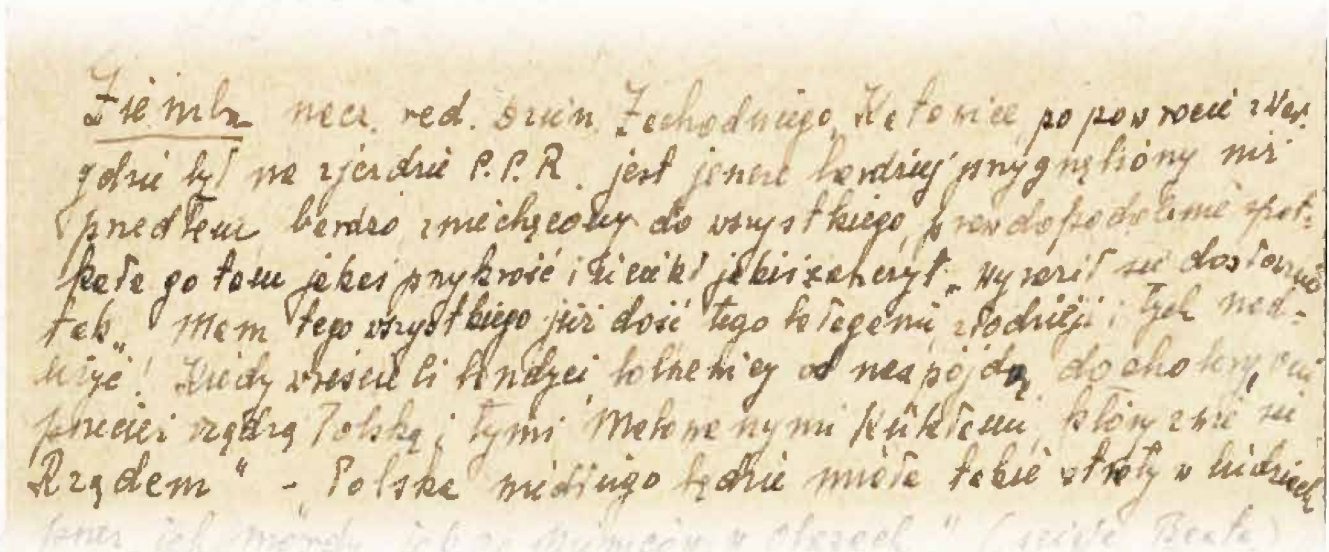 Ziemba nacz. red. Dzien. Zachodniego, Katowice po powrocie z War.
gdzie był na zjeździe P.P.R. jest jeszcze bardziej przygnębiony niż
przedtem bardzo zniechęcony do wszystkiego, prawdopodobnie spot-
kała go tam jakaś przykrość i wyraził się dosłownie
tak „Mam tego wszystkiego już dość tego bałaganu, złodziei i tych nad-
użyć! Kiedy wreszcie ci bandyci bolszewicy od nas pójdą do cholery, oni
przecież rządzą Polską i tymi malowanymi kukłami, który zwie się
Rządem" - Polska niedługo będzie miała takie straty w ludziach
przez ich mordy jak za Niemców w obozach"